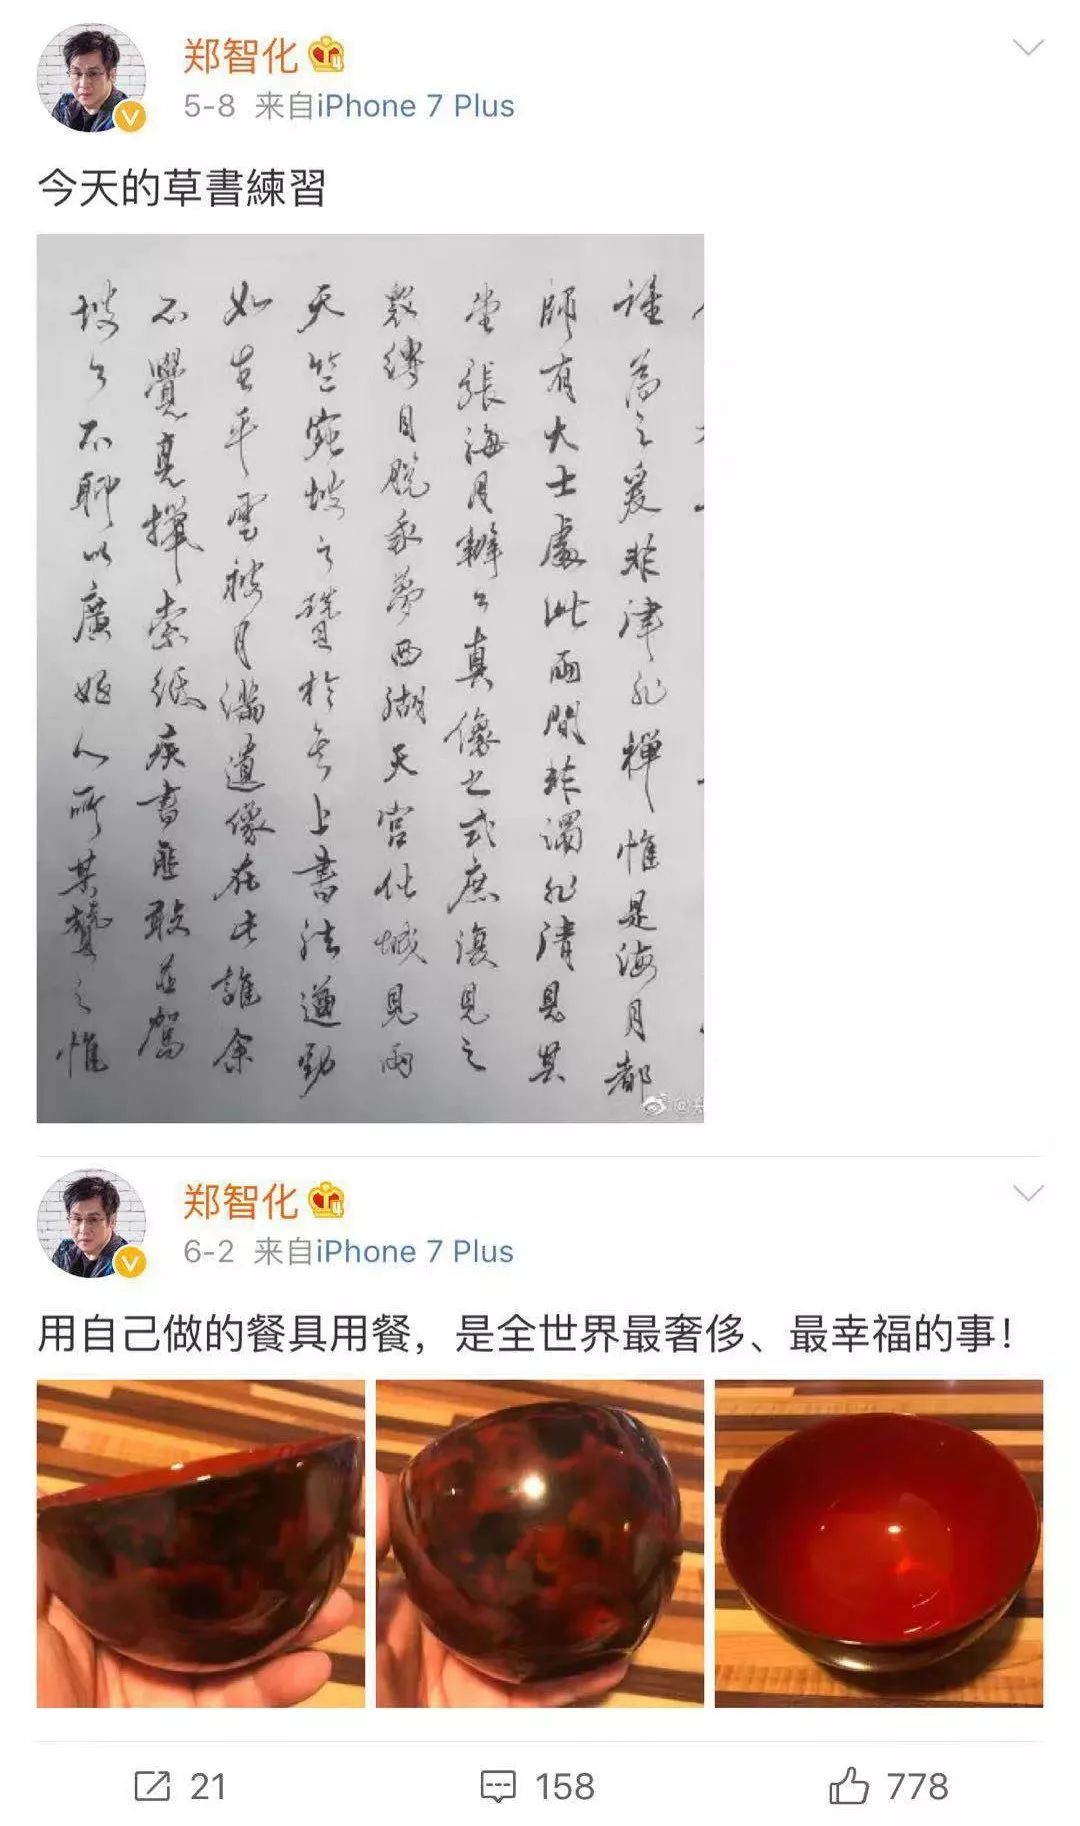 郑智化
5-8 来自iPhone 7 Plus
今天的草書練習
為之爰非津非禪惟是海月都
師有大士處此兩間非濁非清見其
堂張海月辯公真像之式庶復見之
縛自脫我夢西湖天宮化城見兩
天竺宛坡之贊於上書法遒勁
如平雲披月滿遺像在此誰余
不覺見獵索紙疾書匪敢並駕
坡公不聊以廣人所其贊之惟
郑智化
6-2 来自iPhone 7 Plus
用自己做的餐具用餐，是全世界最奢侈、最幸福的事！
21 158 778